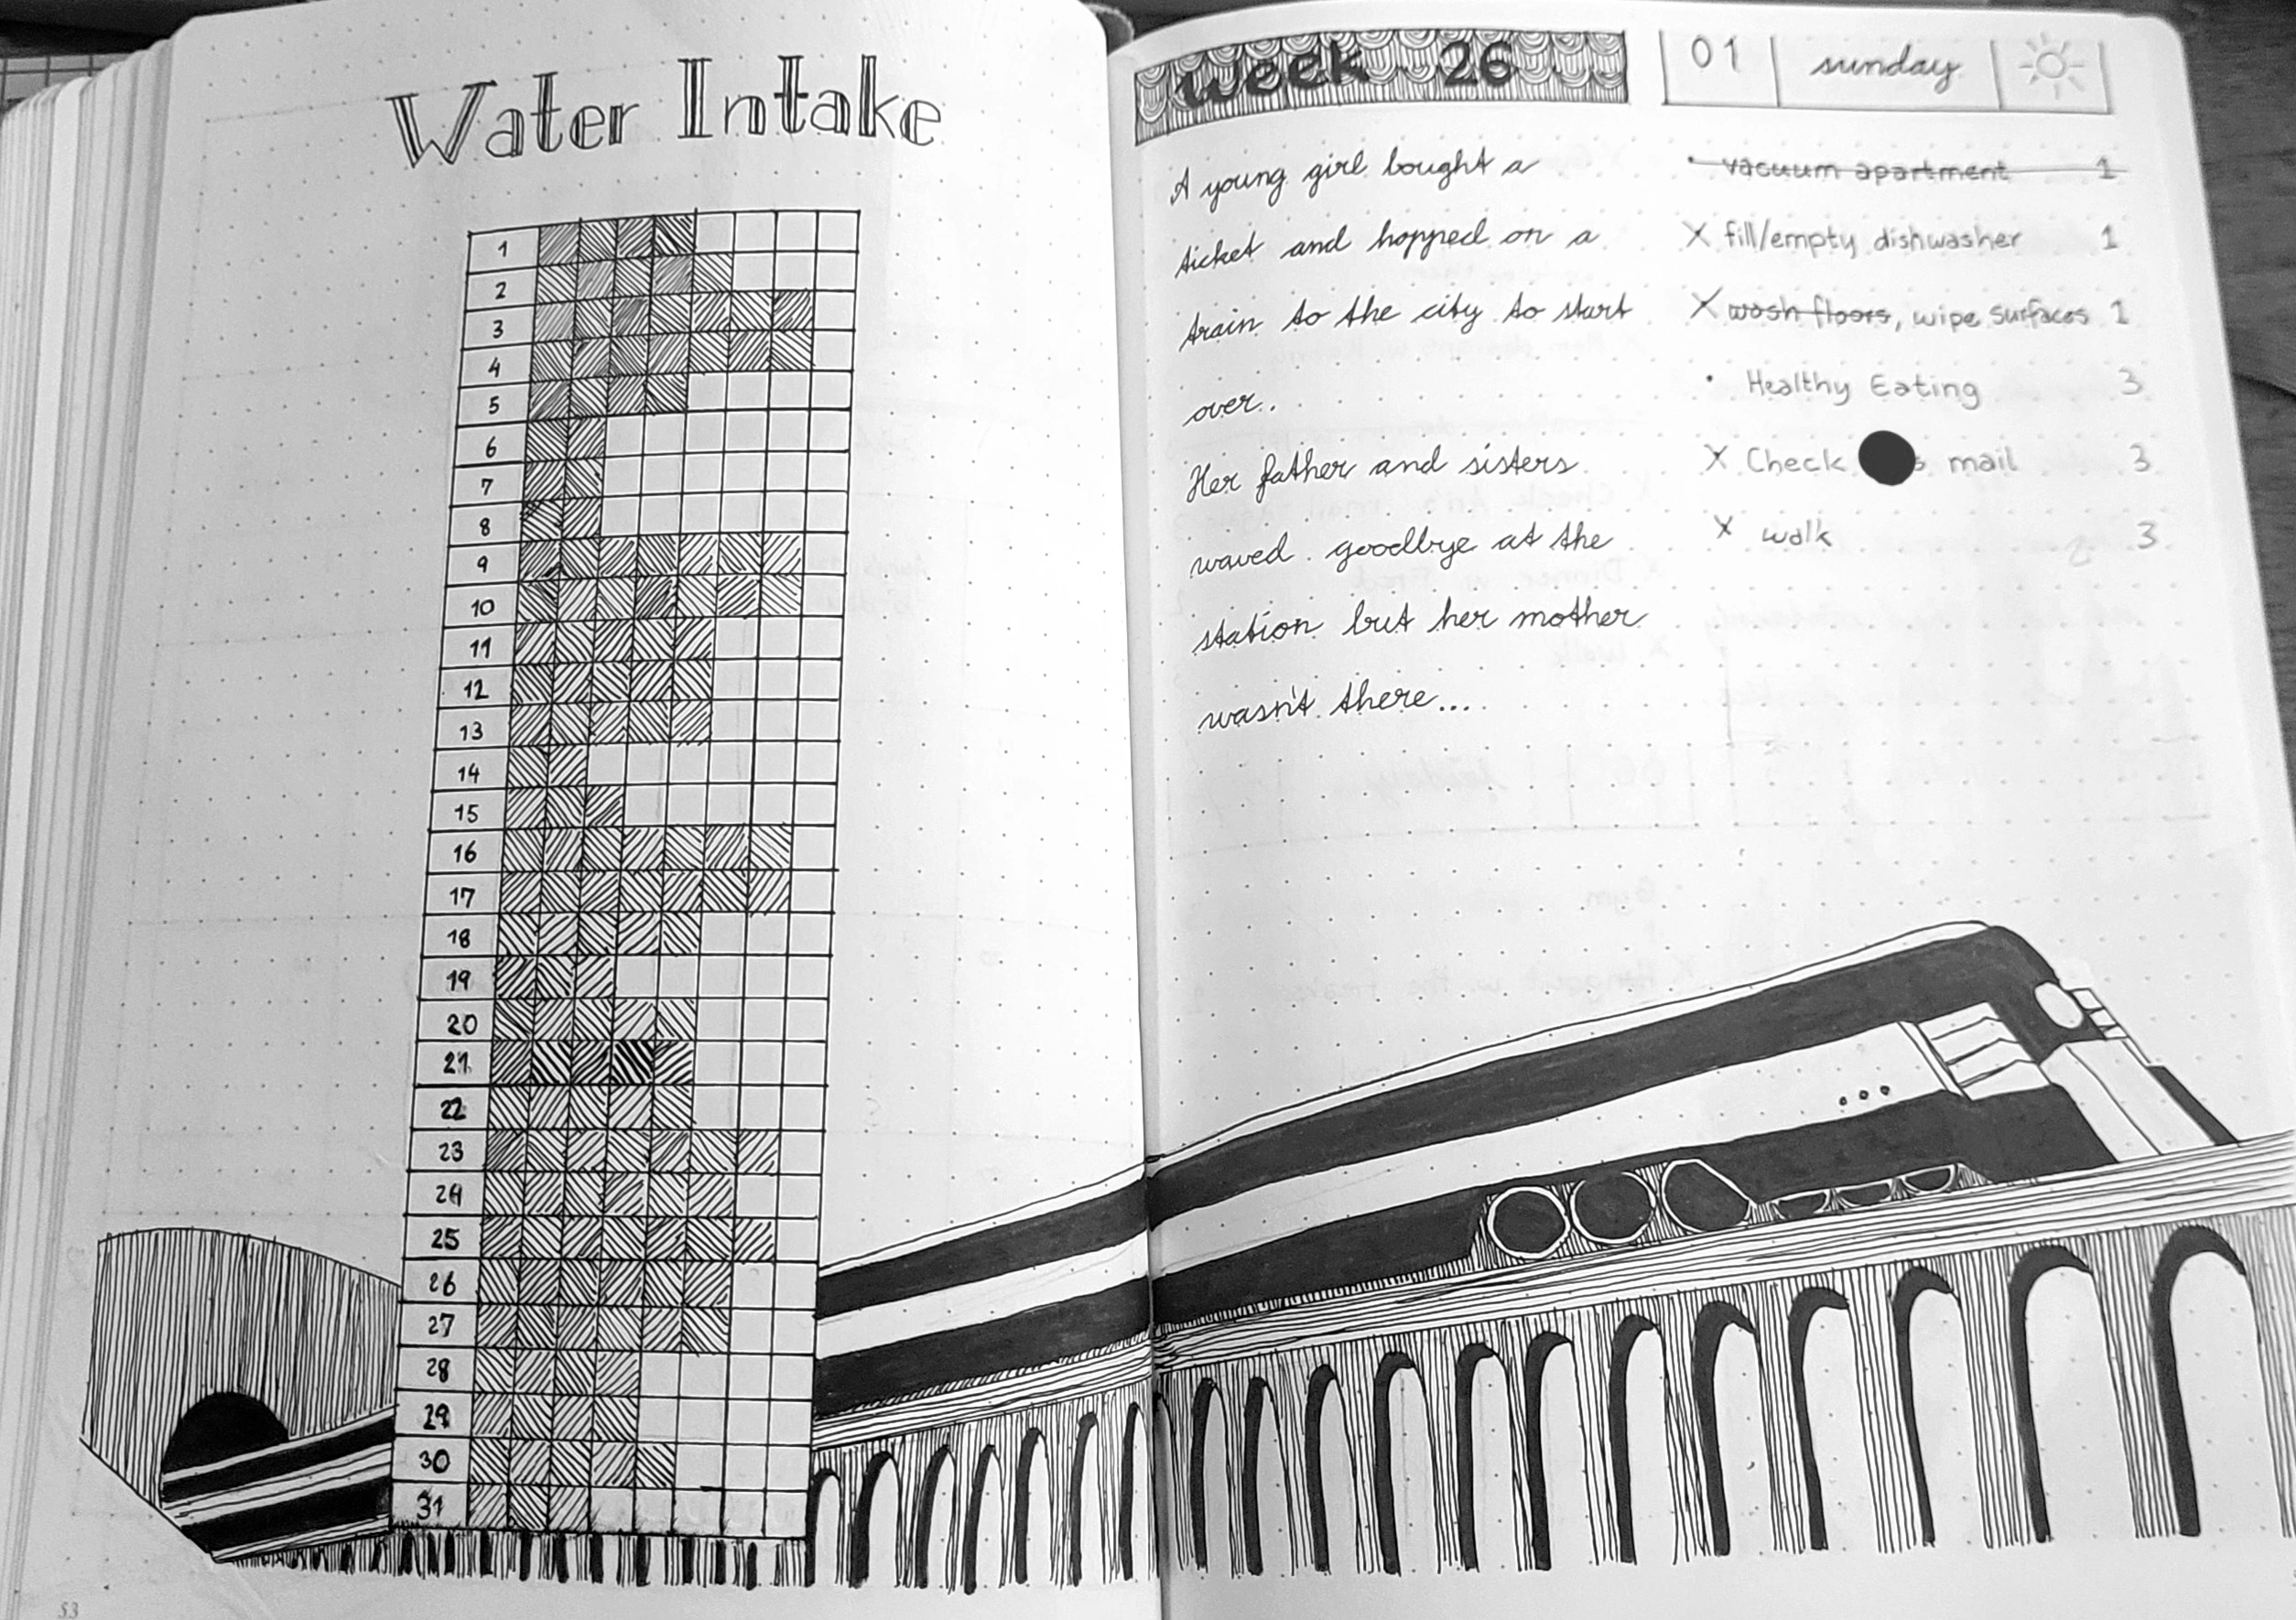 Water Intake
1
2
3
4
5
6
7
8
9
10
11
12
13
14
15
16
17
18
19
20
21
22
23
24
25
26
27
28
29
30
31
53
week 26
01 sunday
A young girl bought a
ticket and hopped on a
train to the city to start
over..
Her father and sisters
waved goodbye at the
station but her mother
wasn't there...
• vacuum apartment 1
X fill/empty dishwasher 1
X wash floors, wipe surfaces 1
• Healthy Eating 3
X Check s mail 3
X walk 3